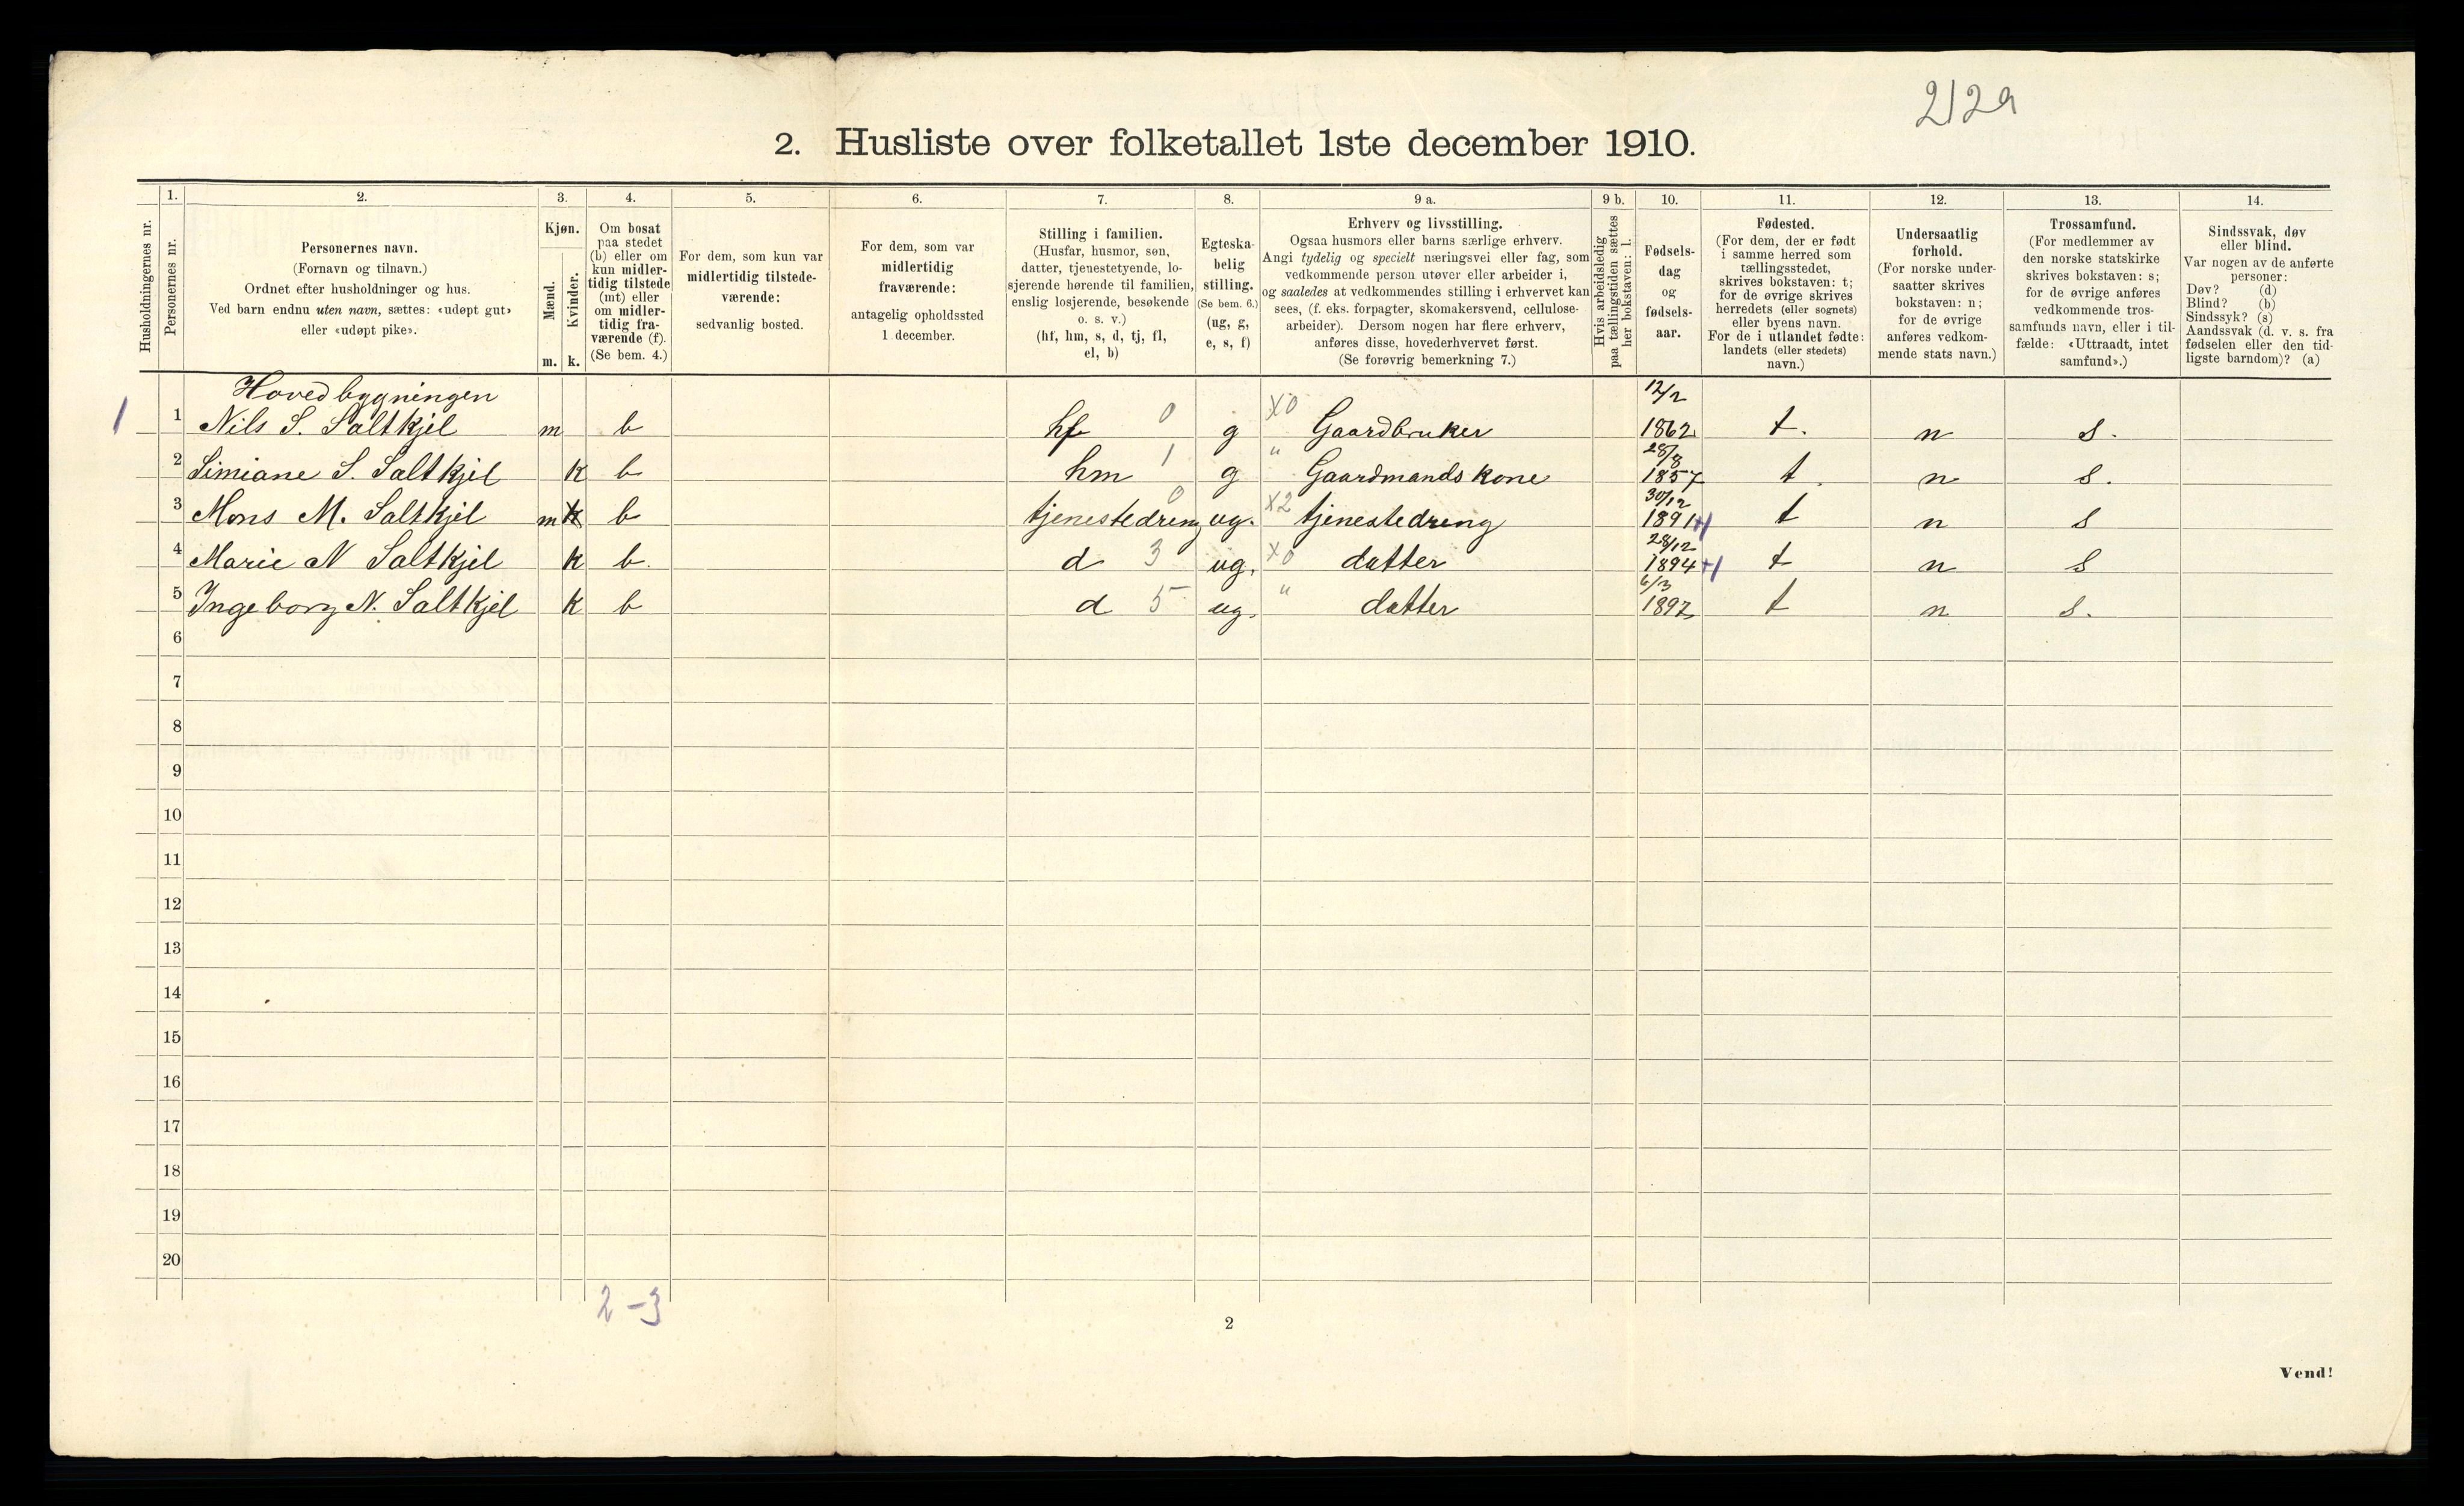 212a
2. Husliste over folketallet 1ste december 1910.
Husholdningernes nr.
1.
Personernes nr.
2.
Personernes navn.
(Fornavn og tilnavn.)
Ordnet efter husholdninger og hus.
Ved barn endnu uten navn, sættes: «udøpt gut»
eller «udøpt pike».
3.
Kjøn.
Mænd.
Kvinder.
m. k.
4.
Om bosat
paa stedet
(b) eller om
kun midler-
tidig tilstede
(mt) eller
om midler-
tidig fra-
værende (f).
(Se bem. 4.)
5.
For dem, som kun var
midlertidig tilstede-
værende:
sedvanlig bosted.
6.
For dem, som var
midlertidig
fraværende:
antagelig opholdssted
1 december.
7.
Stilling i familien.
(Husfar, husmor, søn,
datter, tjenestetyende, lo-
sjerende hørende til familien,
enslig losjerende, besøkende
o. s. v.)
(hf, hm, s, d, tj, fl,
el, b)
8.
Egteska-
belig
stilling.
(Se bem. 6.)
(ug, g,
e, s, f)
9 a.
Erhverv og livsstilling.
Ogsaa husmors eller barns særlige erhverv.
Angi tydelig og specielt næringsvei eller fag, som
vedkommende person utøver eller arbeider i,
og saaledes at vedkommendes stilling i erhvervet kan
sees, (f. eks. forpagter, skomakersvend, cellulose-
arbeider). Dersom nogen har flere erhverv,
anføres disse, hovederhvervet først.
(Se forøvrig bemerkning 7.)
9 b.
Hvis arbeidsledig
paa tællingstiden sættes
her bokstaven: l.
10.
Fødsels-
dag
og
fødsels-
aar.
11.
Fødested.
(For dem, der er født
i samme herred som
tællingsstedet,
skrives bokstaven: t;
for de øvrige skrives
herredets (eller sognets)
eller byens navn.
For de i utlandet fødte:
landets (eller stedets)
navn.)
12.
Undersaatlig
forhold.
(For norske under-
saatter skrives
bokstaven: n;
for de øvrige
anføres vedkom-
mende stats navn.)
13.
Trossamfund.
(For medlemmer av
den norske statskirke
skrives bokstaven: s;
for de øvrige anføres
vedkommende tros-
samfunds navn, eller i til-
fælde: «Uttraadt, intet
samfund».)
14.
Sindssvak, døv
eller blind.
Var nogen av de anførte
personer:
Døv? (d)
Blind? (b)
Sindssyk? (s)
Aandssvak (d. v. s. fra
fødselen eller den tid-
ligste barndom)? (a)
Hovedbygningen
1 1 Nils S. Saltkjel m b hf 0 g X0 Gaardbruker 12/2 1862 t. n s.
2 Simiane S. Saltkjel k b hm 1 g " Gaardmandskone 28/8 1857 t. n s.
3 Mons M. Saltkjel m k b tjenestedreng 0 ug. X2 tjenestedreng 30/12 1891 +1 t n s
4 Marie N Saltkjel k b. d 3 ug. X0 datter 28/12 1894 +1 t n s
5 Ingeborg N. Saltkjel k b d 5 ug. " datter 6/3 1897 t n s.
6
7
8
9
10
11
12
13
14
15
16
17
18
19
20
2-3
2
Vend!